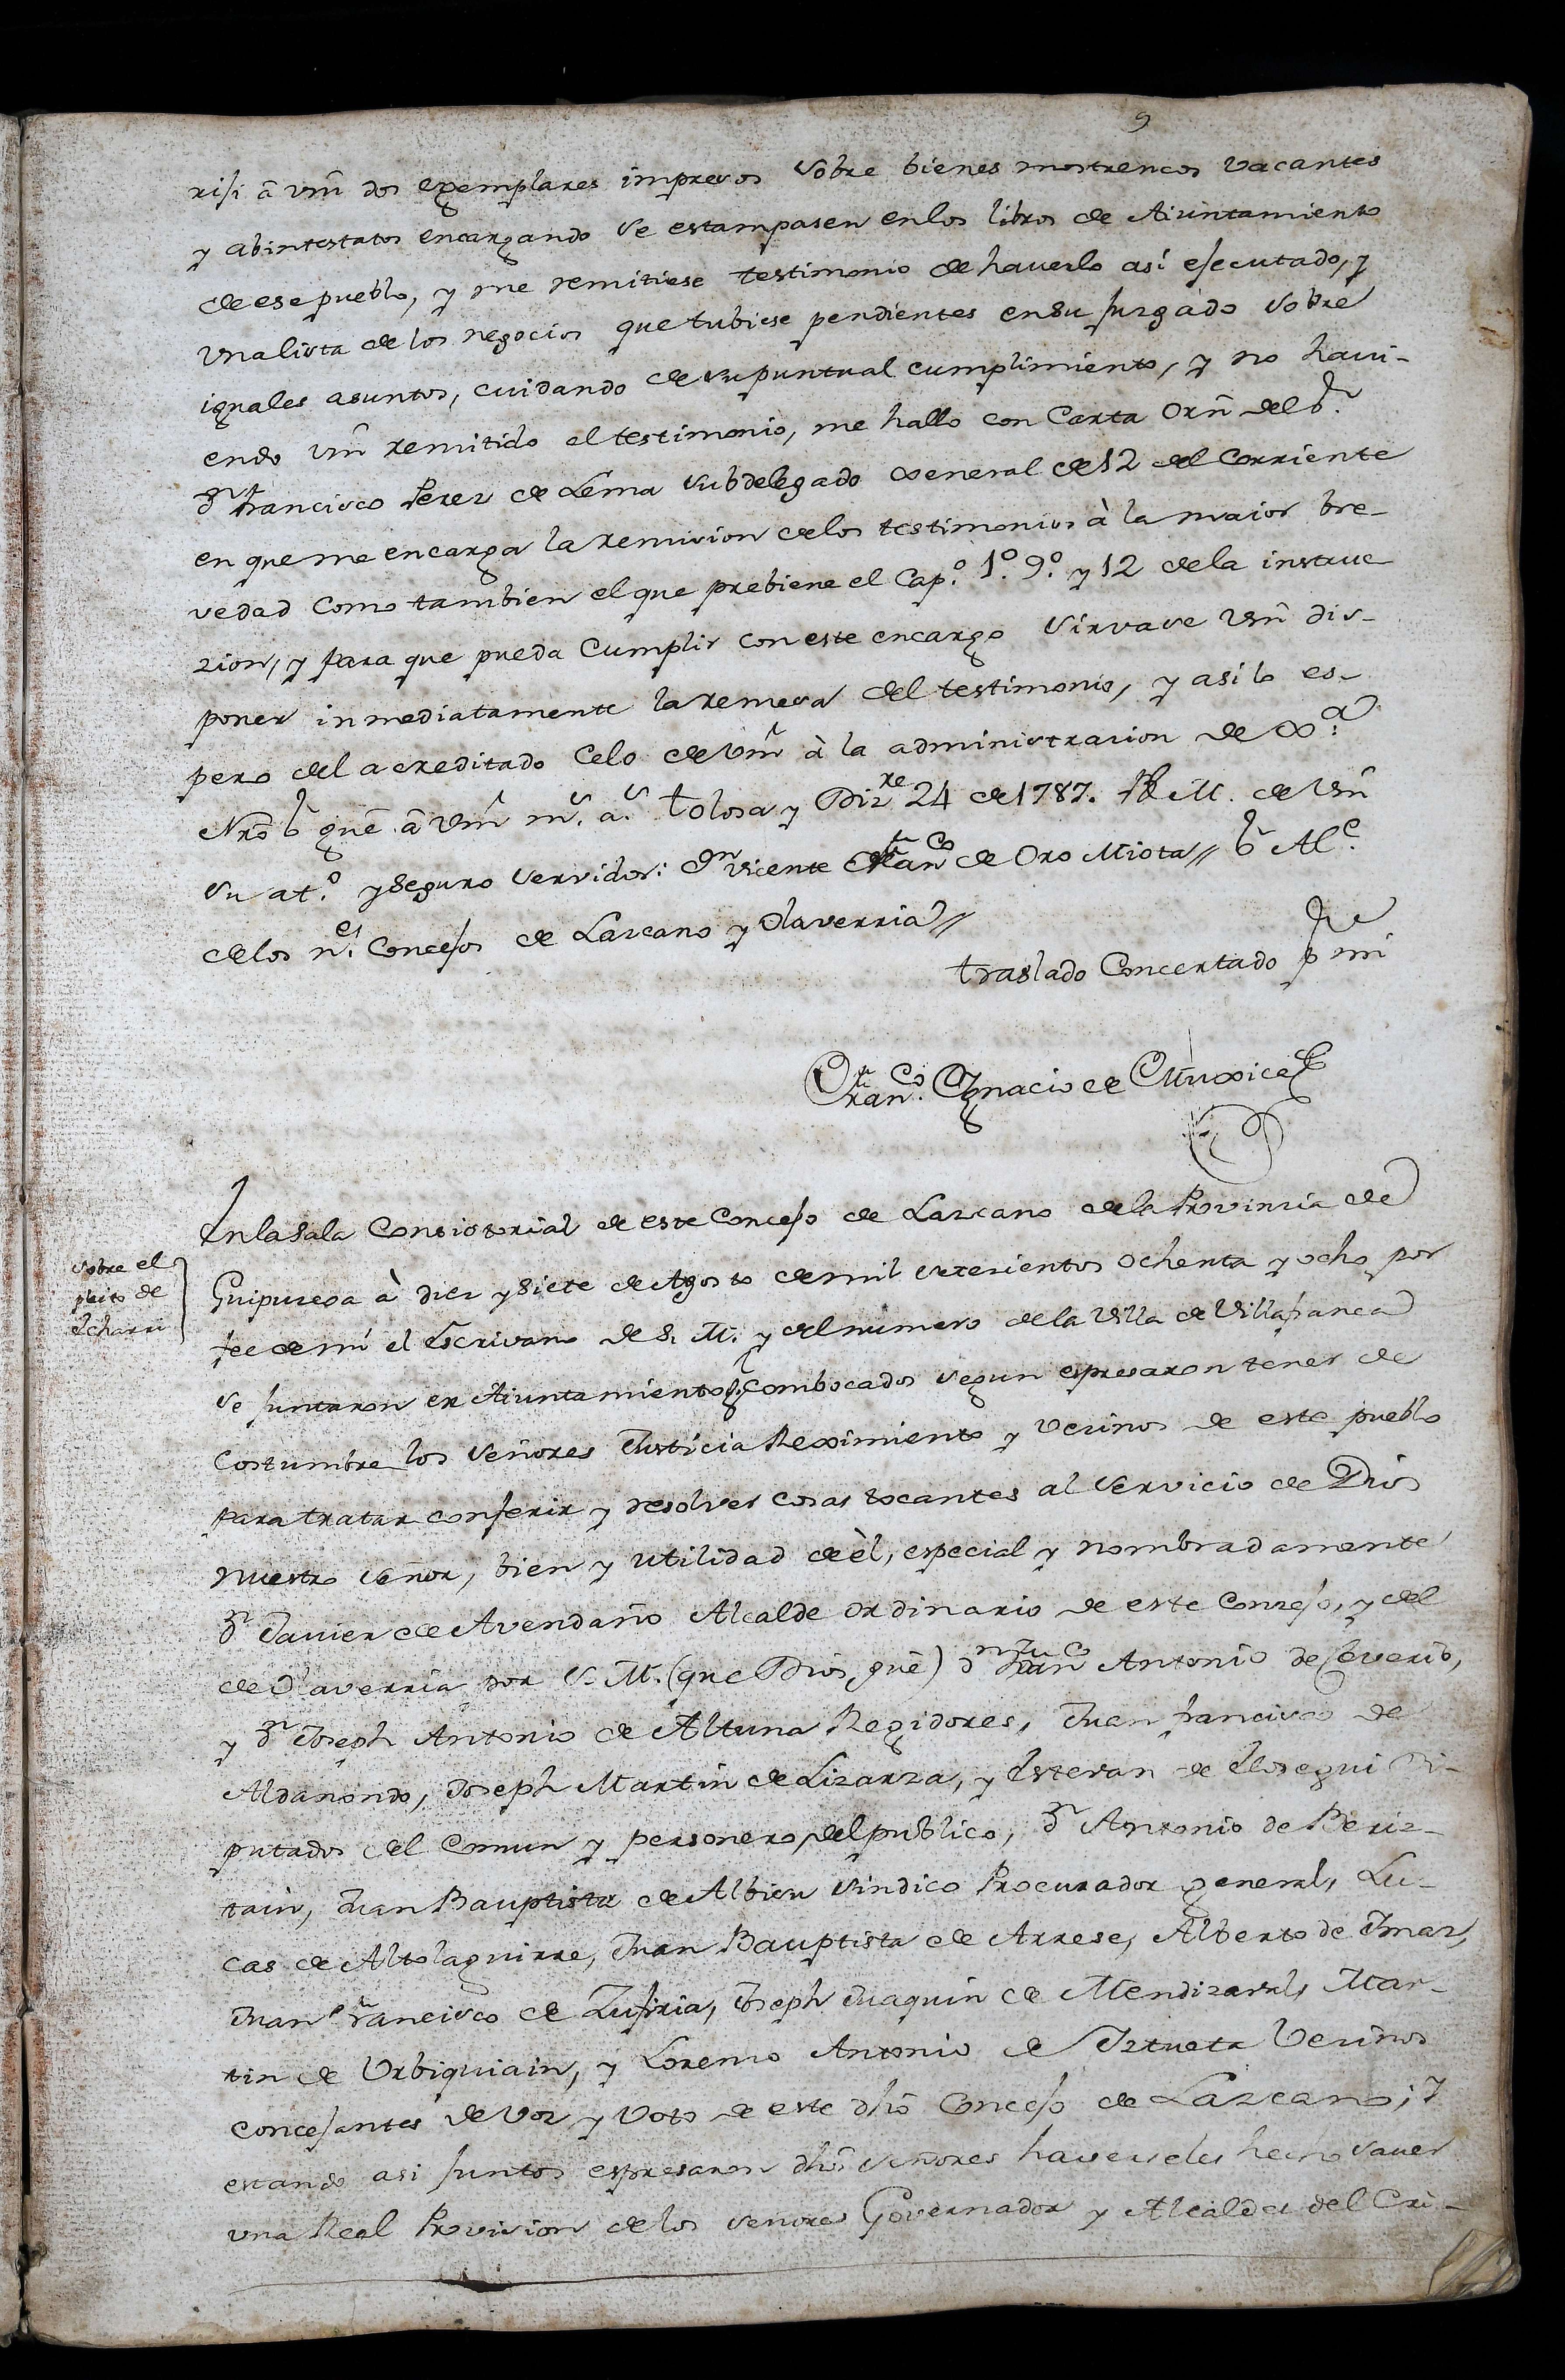 9
rifi â vm̃ dos exemplares impresos sobre bienes mostrencos vacantes
y abintestatos encargando se estampasen enlos libros de Aiuntamiento
de ese pueblo, y me remitiese testimonio de haverlo asi ejecutado, y
una lista de los negocios que tubiese pendientes ensu juzgado sobre
iguales asuntos, cuidando de su puntual cumplimiento, y no havi-
endo vm̃ remitido el testimonio, me hallo con Carta Orñ del Sr.
Dn Francisco Perez de Lema Subdelegado General de 12 del Corriente
en que me encarga la remision delos testimonios à la maior bre-
vedad Como tambien el que prebiene el Cap.º 1.º 9.º y 12 dela instruc
zion, y para que pueda Cumplir con este encargo sirvase Vm̃ dis-
poner inmediatamente la remesa del testimonio, y asi lo es-
pero del acreditado Celo de Vm̃ à la administracion de Ga.
Nrõ Sr gue â Vm̃ ms. as. Tolosa y Dizre 24 de 1787. B L M. de Vm̃
su at.º y Seguro servidor: Dn Vicente Franco de Oro Miota // Sr Alc.e
delos nes. Concejos de Lazcano y Olaverria //
Traslado Concertado p mi
Franco. Ignacio de Muxica
Sobre el
pleito de
Echarri
En la Sala Consistorial de este Concejo de Lazcano dela Provincia de
Guipuzcoa à diez y siete de Agosto de mil setecientos ochenta y ocho por
fee de mi el Escrivano de S. M. y del numero de la Villa de Villafranca
se juntaron en Aiuntamiento Combocados segun espresaron tener de
Costumbre los Señores Justicia Reximiento y vecinos de este pueblo
para tratar conferir y resolver cosas tocantes al servicio de Dios
nuestro Señor, bien y utilidad de èl, especial y nombradamente
Dn Javier de Avendaño Alcalde Ordinario de este Concejo, y del
de Olaverria por S. M. (que Dios gue) Dn Franco Antonio de
y Dn Joseph Antonio de Altuna Regidores, Juan francisco de
Aldanondo, Joseph Martin de Lizarza, y Estevan de Elosegui Di-
putados del Comun y personero del publico, Dn Antonio de Beriz-
tain, Juan Bauptista de Albisu Sindico Procurador general, Lu-
cas de Altolaguirre, Juan Bauptista de Arrese, Alberto de Imaz,
Juan Francisco de Zufiria, Joseph Juaquin de Mendizaval, Mar-
tin de Urbiquiain, y Lorenzo Antonio de Iztueta Vecinos
Concejantes de Voz y Voto de este dho Concejo de Lazcano; y
estando asi juntos espresaron dhos señores haverseles hecho saver
una Real Provision de los señores Governador y Alcaldes del Cri-